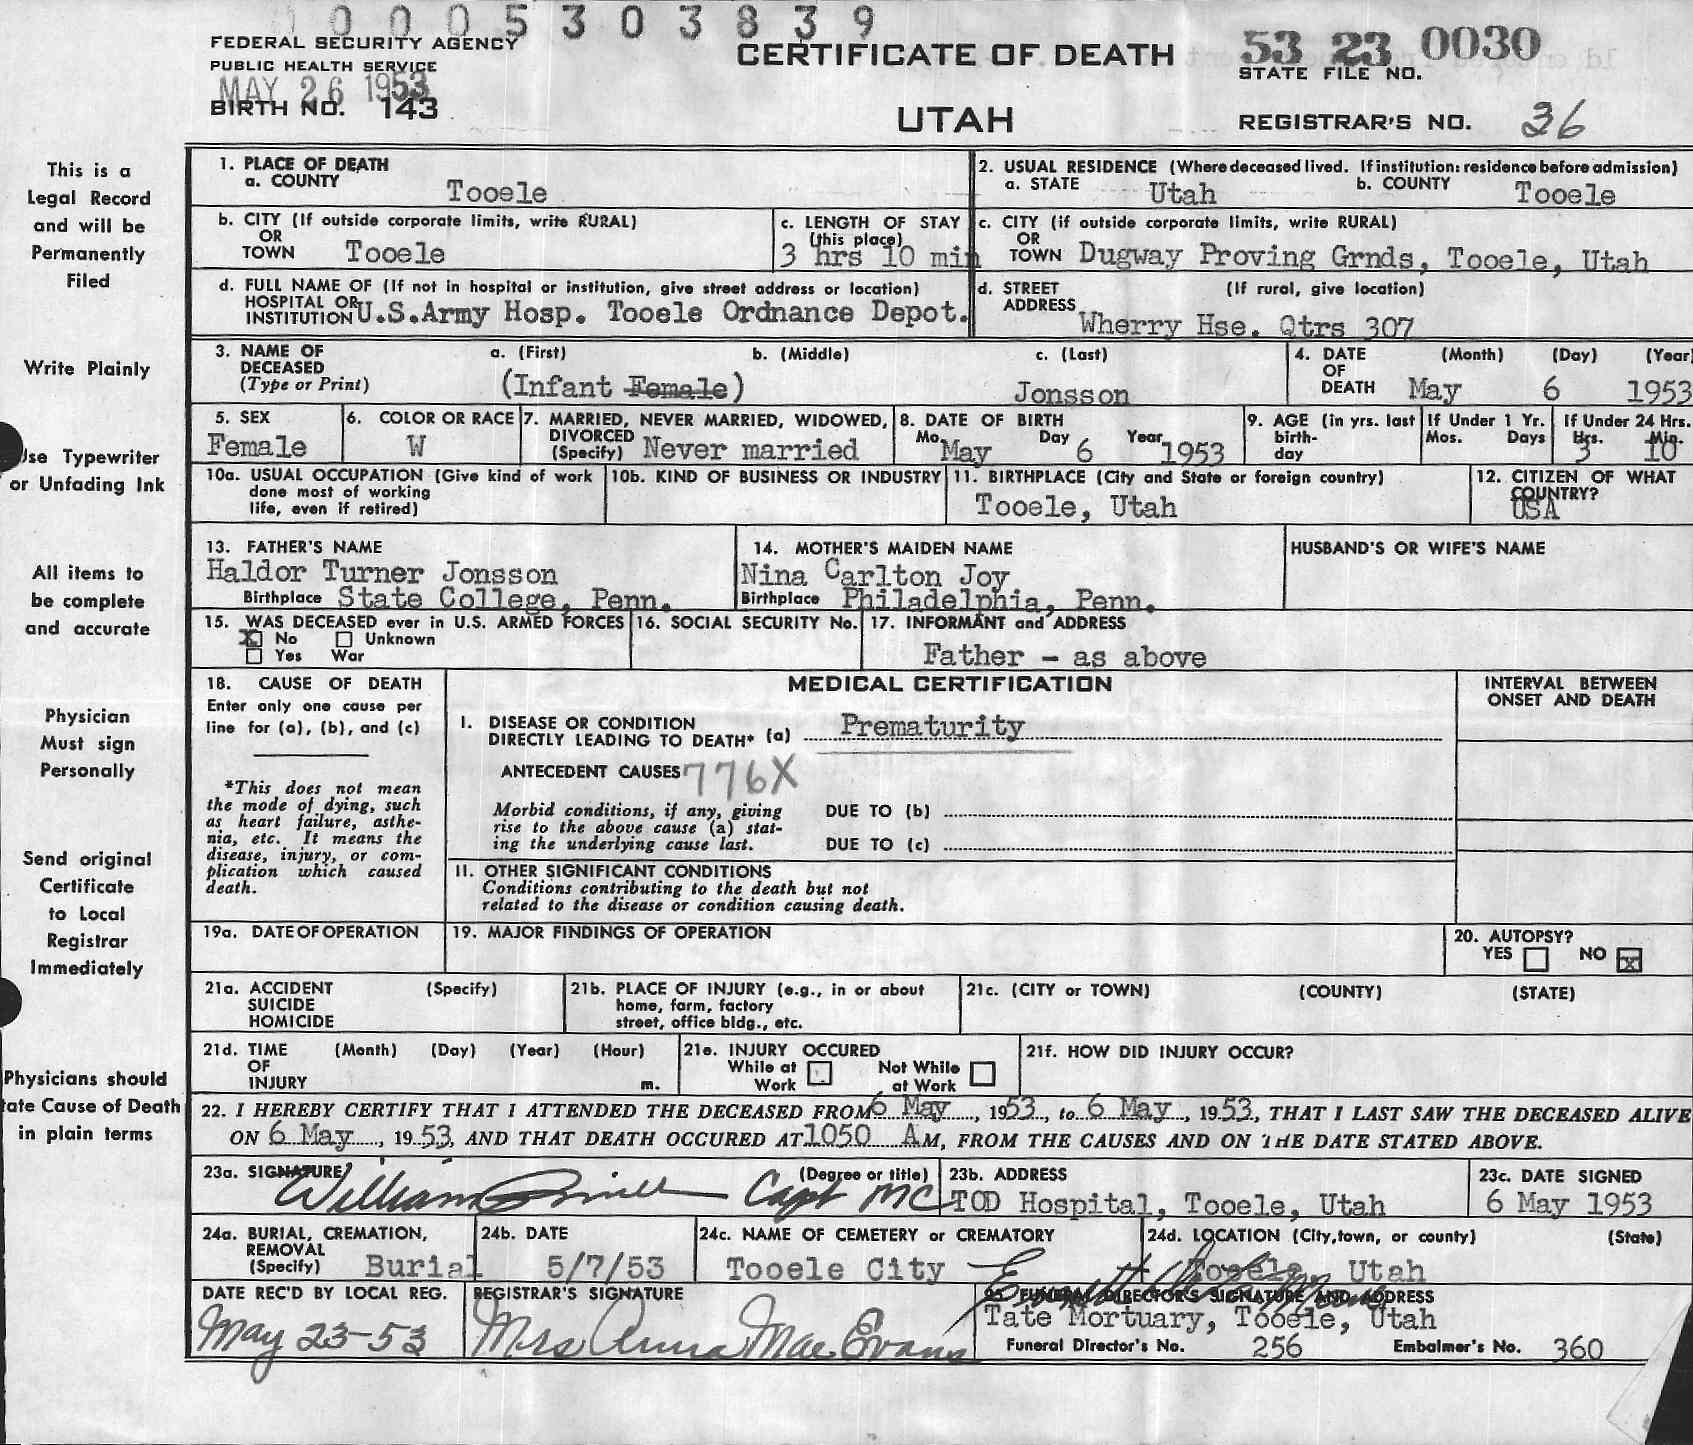 0005303839
FEDERAL SECURITY AGENCY
PUBLIC HEALTH SERVICE
MAY 26 1953
BIRTH NO. 143
CERTIFICATE OF DEATH
UTAH
53 23 0030
STATE FILE NO.
REGISTRAR'S NO. 36
This is a
Legal Record
and will be
Permanently
Filed
Write Plainly
Use Typewriter
or Unfading Ink
All items to
be complete
and accurate
Physician
Must sign
Personally
Send original
Certificate
to Local
Registrar
Immediately
Physicians should
tate Cause of Death
in plain terms
1. PLACE OF DEATH
a. COUNTY Tooele
2. USUAL RESIDENCE (Where deceased lived. If institution: residence before admission)
a. STATE Utah b. COUNTY Tooele
b. CITY (If outside corporate limits, write RURAL)
OR
TOWN Tooele
c. LENGTH OF STAY
(this place)
3 hrs 10 min
c. CITY (if outside corporate limits, write RURAL)
OR
TOWN Dugway Proving Grnds, Tooele, Utah
d. FULL NAME OF (If not in hospital or institution, give street address or location)
HOSPITAL OR
INSTITUTION U.S.Army Hosp. Tooele Ordnance Depot.
d. STREET (If rural, give location)
ADDRESS Wherry Hse. Qtrs 307
3. NAME OF DECEASED (Type or Print)
a. (First) b. (Middle) c. (Last)
(Infant Female) Jonsson
4. DATE OF DEATH (Month) (Day) (Year)
May 6 1953
5. SEX
Female
6. COLOR OR RACE
W
7. MARRIED, NEVER MARRIED, WIDOWED,
DIVORCED
(Specify) Never married
8. DATE OF BIRTH
Mo. Day Year
May 6 1953
9. AGE (in yrs. last birth-day
If Under 1 Yr.
Mos. Days
If Under 24 Hrs.
Hrs. Min.
3 10
10a. USUAL OCCUPATION (Give kind of work
done most of working
life, even if retired)
10b. KIND OF BUSINESS OR INDUSTRY
11. BIRTHPLACE (City and State or foreign country)
Tooele, Utah
12. CITIZEN OF WHAT
COUNTRY?
USA
13. FATHER'S NAME
Haldor Turner Jonsson
Birthplace State College, Penn.
14. MOTHER'S MAIDEN NAME
Nina Carlton Joy
Birthplace Philadelphia, Penn.
HUSBAND'S OR WIFE'S NAME
15. WAS DECEASED ever in U.S. ARMED FORCES
X No Unknown
Yes War
16. SOCIAL SECURITY No.
17. INFORMANT and ADDRESS
Father - as above
18. CAUSE OF DEATH
Enter only one cause per
line for (a), (b), and (c)
*This does not mean
the mode of dying, such
as heart failure, asthe-
nia, etc. It means the
disease, injury, or com-
plication which caused
death.
MEDICAL CERTIFICATION
INTERVAL BETWEEN
ONSET AND DEATH
I. DISEASE OR CONDITION
DIRECTLY LEADING TO DEATH* (a) Prematurity
ANTECEDENT CAUSES 776X
Morbid conditions, if any, giving
rise to the above cause (a) stat-
ing the underlying cause last.
DUE TO (b)
DUE TO (c)
II. OTHER SIGNIFICANT CONDITIONS
Conditions contributing to the death but not
related to the disease or condition causing death.
19a. DATE OF OPERATION
19. MAJOR FINDINGS OF OPERATION
20. AUTOPSY?
YES NO X
21a. ACCIDENT (Specify)
SUICIDE
HOMICIDE
21b. PLACE OF INJURY (e.g., in or about
home, farm, factory
street, office bldg., etc.
21c. (CITY or TOWN) (COUNTY) (STATE)
21d. TIME (Month) (Day) (Year) (Hour)
OF
INJURY m.
21e. INJURY OCCURED
While at Work
Not While at Work
21f. HOW DID INJURY OCCUR?
22. I HEREBY CERTIFY THAT I ATTENDED THE DECEASED FROM 6 May, 1953, to 6 May, 1953, THAT I LAST SAW THE DECEASED ALIVE
ON 6 May, 1953, AND THAT DEATH OCCURED AT 1050 AM, FROM THE CAUSES AND ON THE DATE STATED ABOVE.
23a. SIGNATURE (Degree or title)
William Capt MC
23b. ADDRESS
TOD Hospital, Tooele, Utah
23c. DATE SIGNED
6 May 1953
24a. BURIAL, CREMATION,
REMOVAL
(Specify) Burial
24b. DATE
5/7/53
24c. NAME OF CEMETERY or CREMATORY
Tooele City
24d. LOCATION (City, town, or county) (State)
Tooele, Utah
DATE REC'D BY LOCAL REG.
May 23-53
REGISTRAR'S SIGNATURE
Mrs Anna Mae Evans
25 FUNERAL DIRECTOR'S SIGNATURE AND ADDRESS
Tate Mortuary, Tooele, Utah
Funeral Director's No. 256 Embalmer's No. 360